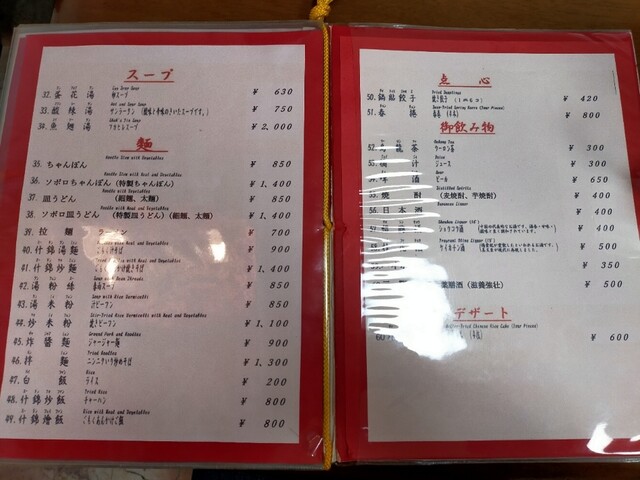 スープ
Egg Drop Soup
32. 蛋花湯 卵スープ ¥ 630
Hot and Sour Soup
33. 酸辣湯 サンラータン (酸味と辛味のきいたスープです。) ¥ 750
Shark's Fin Soup
34. 魚翅湯 フカヒレスープ ¥ 2,000
麺
Noodle Stew with Vegetables
35. ちゃんぽん ¥ 850
Noodle Stew with Meat and Vegetables
36. ソボロちゃんぽん (特製ちゃんぽん) ¥ 1,400
Noodle with Vegetables
37. 皿うどん (細麺、太麺) ¥ 850
Noodle with Meat and Vegetables
38. ソボロ皿うどん (特製皿うどん) (細麺、太麺) ¥ 1,400
39. 拉麺 ¥ 700
40. 什錦湯麺 ¥ 900
41. 什錦炒麺 ごもくあんかけ焼きそば ¥ 1,400
42. 湯粉絲 春雨スープ ¥ 850
Soup with Rice Vermicelli
43. 湯米粉 汁ビーフン ¥ 900
Stir-Fried Rice Vermicelli with Meat and Vegetables
44. 炒米粉 焼きビーフン ¥ 1,100
Ground Pork and Noodles
45. 炸醤麺 ジャージャー麺 ¥ 900
Fried Noodles
46. 拌麺 ニンニクいり炒めそば ¥ 1,300
Rice
47. 白飯 ライス ¥ 200
Fried Rice
48. 什錦炒飯 チャーハン ¥ 800
Rice with Meat and Vegetables
49. 什錦燴飯 ごもくあんかけご飯 ¥ 800
点心
Fried Dumplings
50. 鍋貼餃子 焼き餃子 ¥ 420
51. 春捲 春巻 (4本) ¥ 800
御飲み物
52. 烏龍茶 ウーロン茶 ¥ 300
Juice
汁 ジュース ¥ 300
Beer
啤酒 ビール ¥ 650
Distilled Spirits
55. 焼酎 (麦焼酎、芋焼酎) ¥ 400
56. 日本酒 ¥ 400
ショウコウ酒 ¥ 400
ケイカチン酒 ¥ 500
¥ 350
薬膳酒 (滋養強壮) ¥ 500
デザート
60. ¥ 600